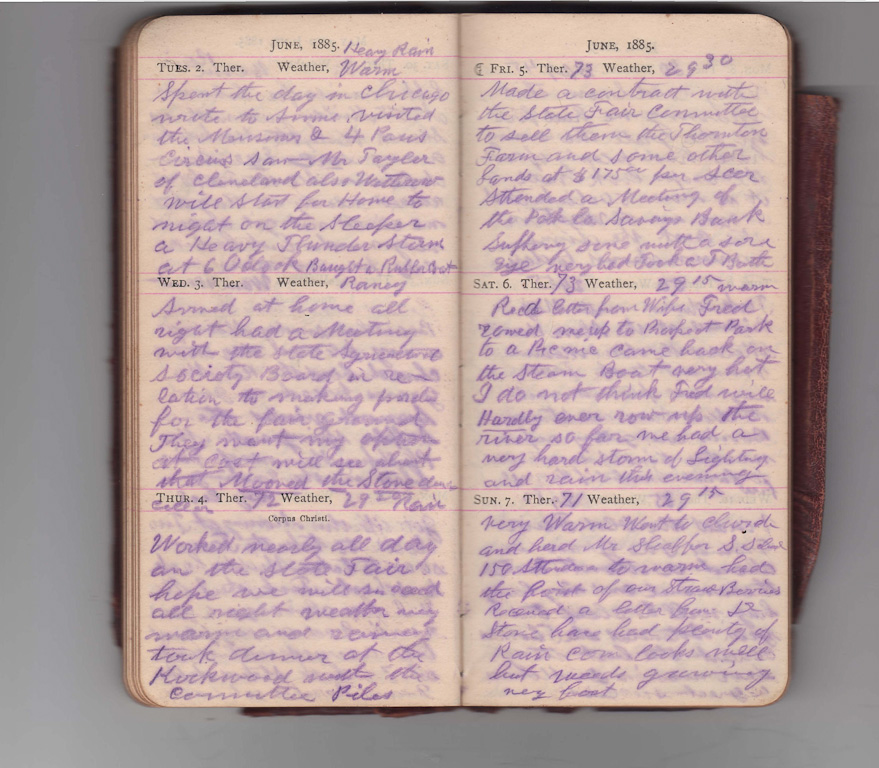 JUNE, 1885. Heavy Rain
TUES. 2. Ther. Weather, Warm
Spent the day in Chicago
wrote to Annie, visited
the Museums & 4 Paws
Circus saw Mr Taylor
of Cleveland also
will start for Home to
night on the Sleeper
a Heavy Thunder Storm
at 6 Oclock Bought a Rubber Coat
WED. 3. Ther. Weather, Raney
Arived at home all
right had a Meeting
with the State Agricultural
Society Board in re-
lation to making
for the fair grounds
They want my option
at Cost will see about
that Mooved the Stone
THUR. 4. Ther. 72 Weather, 29 Rain
Corpus Christi.
Worked nearly all day
on the State Fair
hope we will suceed
all right weather very
warm and rainey
took dinner at the
Rockwood with the
Committee Piles
JUNE, 1885.
FRI. 5. Ther. 73 Weather, 29 30
Made a contract with
the State Fair Committee
to sell them the Thornton
Farm and some other
Lands at $175 00 per Acer
Attended a Meeting of
the Savings Bank
Suffering some with a sore
eye very bad Took a T Bath
SAT. 6. Ther. 73 Weather, 29 15 warm
Recd letter from Wife Fred
rowed me up to Prospect Park
to a Picnic came back on
the Steam Boat very hot
I do not think Fred will
Hardly ever row up the
river so far we had a
very hard storm of Lightng
and rain this evening
SUN. 7. Ther. 71 Weather, 29 15
very Warm Went to church
and herd Mr S. School
150 Attendance to warm had
the first of our Straw Berries
Received a letter from
Stone have had plenty of
Rain corn looks well
but weeds growing
very fast